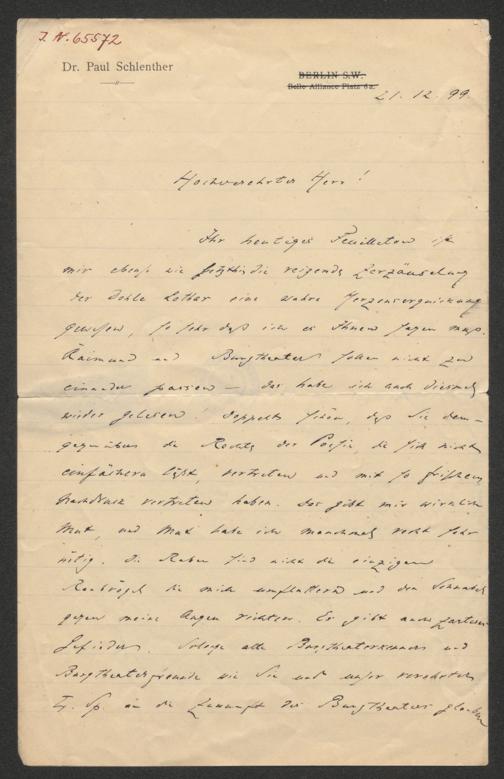 J. N. 65572
Dr. Paul Schlenther
BERLIN S.W.
Belle Alliance Platz 6a.
21. 12. 99
Hochverehrter Herr!
Ihr heutiges Feuilleton ist
mir ebenso wie die reizende Zerzäuselung
der Dohle Lothar eine wahre Herzenserquickung
gewesen, so sehr daß ich es Ihnen sagen muß.
Raimund und Burgtheater sollen nicht zu
einander passen – das habe ich auch diesmal
wieder gelesen! Doppelt schön, daß Sie dem-
gegenüber die Rechte der Poesie, die sich nicht
einfächern läßt, vertreten und mit so frischem
Nachdruck vertreten haben. Das gibt mir wirklich
Mut, und Mut habe ich manchmal recht sehr
nötig. Die Raben sind nicht die einzigen
Raubvögel die mich umflattern und den Schnabel
gegen meine Augen richten. Es gibt auch zarteres
Gefieder. Solange alle Burgtheaterkenner und
Burgtheaterfreunde wie Sie und unser verehrter
L. Sp. an die Zukunft des Burgtheaters glauben